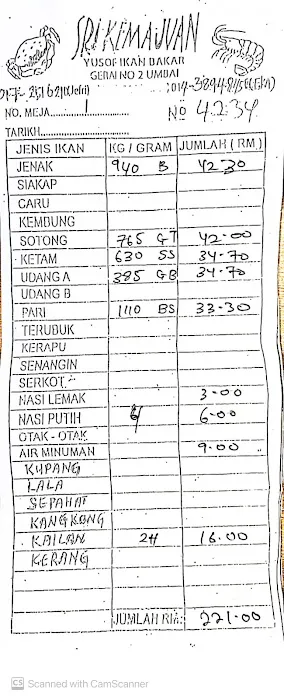 SRI KEMAJUAN
YUSOF IKAN BAKAR
GERAI NO 2 UMBAI
NO. MEJA 1 NO 4234
TARIKH
JENIS IKAN KG / GRAM JUMLAH ( RM )
JENAK 940 B 42.30
SIAKAP
CARU
KEMBUNG
SOTONG 765 GT 42.00
KETAM 630 SS 34.70
UDANG A 385 GB 34.70
UDANG B
PARI 1110 BS 33.30
TERUBUK
KERAPU
SENANGIN
SERKOT
NASI LEMAK 3.00
NASI PUTIH 4 6.00
OTAK - OTAK
AIR MINUMAN 9.00
KUPANG
LALA
SEPAHAT
KANGKONG
KAILAN 2H 16.00
KERANG
JUMLAH RM: 221.00
CS Scanned with CamScanner